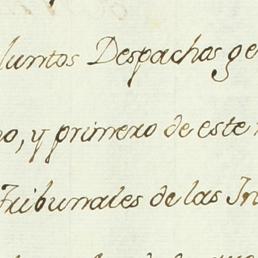 Juntos Despachos ge
no, y primero de este
Tribunales de las In